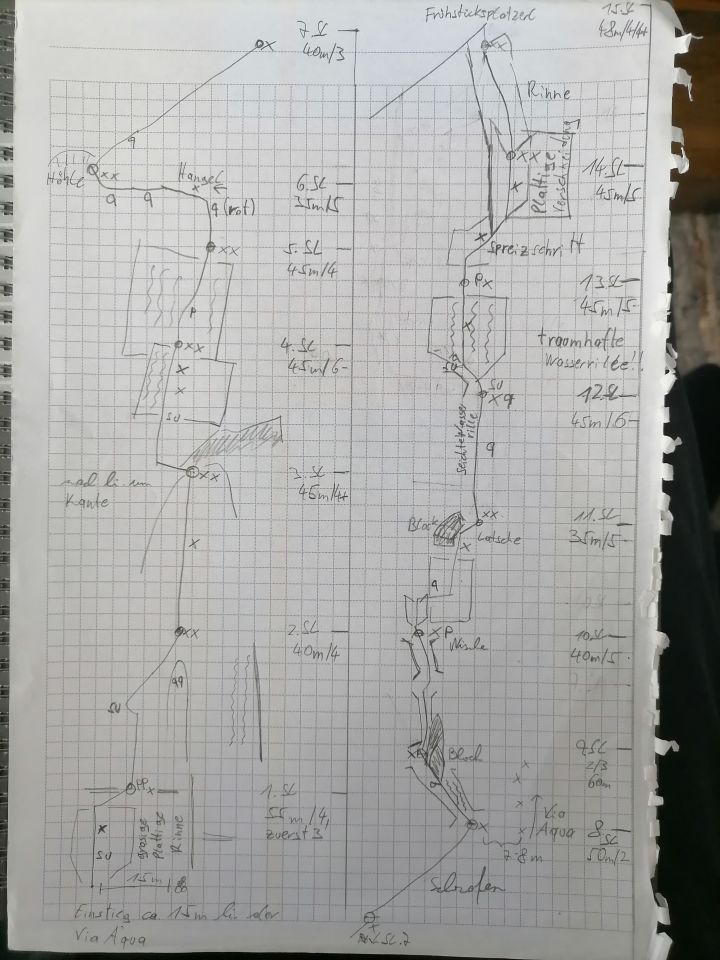 7. SL
40m/3
q
Höhle
xx
Hangel
q q
q (rot)
6. SL
35m/5
xx
5. SL
45m/4
P
xx
4. SL
45m/6-
SU
xx
3. SL
45m/4+
nach li. um
Kante
xx
2. SL
40m/4
qq
SU
PP x
1. SL
55m/4,
zuerst 3
SU
grasige
Plattige
Rinne
15m
Einstieg ca 15m li. der
Via Aqua
Frühstücksplatzerl
15. SL
48m/4/4+
xx
Rinne
xx
Plattige
Verschneidung
14. SL
45m/5
Spreizschritt
Px
13. SL
45m/5-
traumhafte
Wasserrille!!
SU
SU
xq
12. SL
45m/6-
seichte Wasser
rille
q
xx
11. SL
35m/5-
Block
Latsche
q
xP
Nische
10. SL
40m/5-
9. SL
2/3
60m
Block
q
x
Via
Aqua
8.
SL
50m/2
7-8m
Schrofen
SL 7